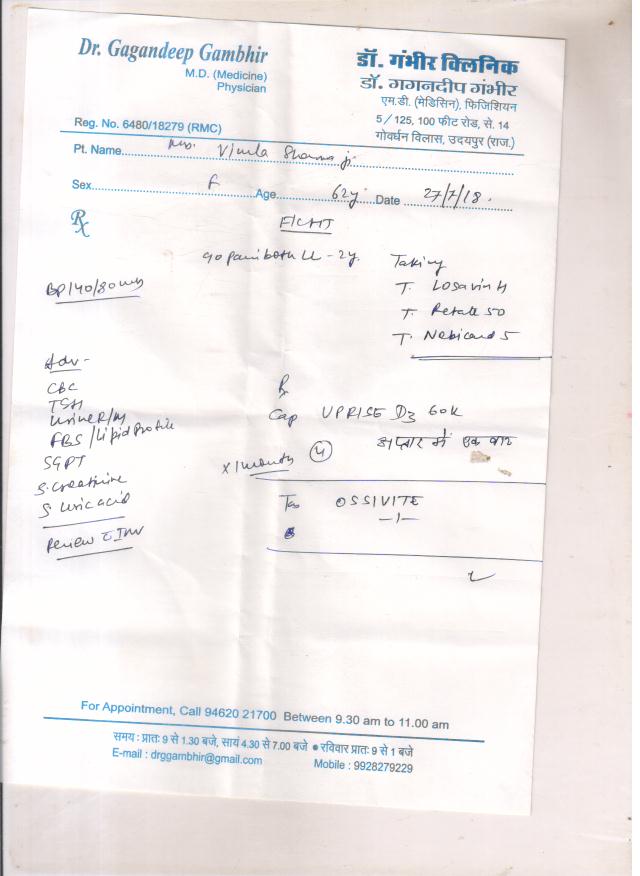 Dr. Gagandeep Gambhir
M.D. (Medicine)
Physician
Reg. No. 6480/18279 (RMC)
डॉ. गंभीर क्लिनिक
डॉ. गगनदीप गंभीर
एम.डी. (मेडिसिन), फिजिशियन
5/125, 100 फीट रोड, से. 14
गोवर्धन विलास, उदयपुर (राज.)
Pt. Name Mrs. Vimla Sharma ji
Sex F Age 62y Date 27/7/18.
Rx
F/C HT
c/o pain both LL - 2y
BP 140/80
Taking
T. Losavin H
T. Retale 50
T. Nebicard 5
Adv -
CBC
TSH
Urine R/M
FBS / Lipid profile
SGPT
S. creatinine
S. uric acid
Review c Inv
Rx
Cap UPRISE D3 60K
सप्ताह में एक बार
x 1 month 4
Tab OSSIVITE
-1-
For Appointment, Call 94620 21700 Between 9.30 am to 11.00 am
समय : प्रातः 9 से 1.30 बजे, सायं 4.30 से 7.00 बजे ● रविवार प्रातः 9 से 1 बजे
E-mail : drggambhir@gmail.com Mobile : 9928279229